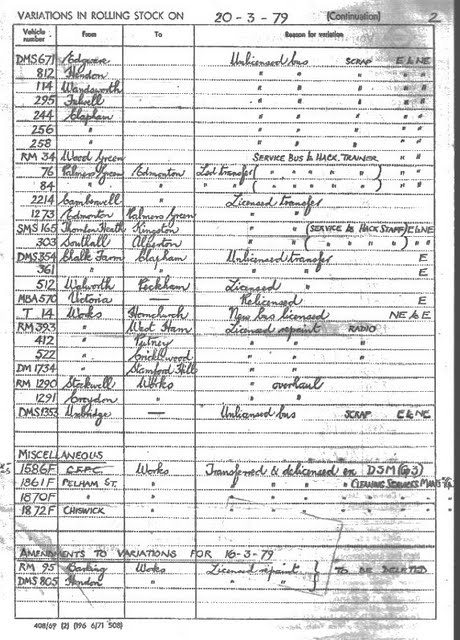 VARIATIONS IN ROLLING STOCK ON 20-3-79 (Continuation) 2
Vehicle number From To Reason for variation
DMS 671 Edgware Unlicensed bus SCRAP E to NE
812 Hendon " " " " "
114 Wandsworth " " " " "
295 Fulwell " " " " "
244 Clapham " " " " "
256 " " " " " "
258 " " " " " "
RM 34 Wood Green SERVICE BUS to HACK. TRAINER " "
76 Palmers Green Edmonton Lsd transfer ( " " " " ) " "
84 " " " " ( " " " " ) " "
2214 Camberwell Licensed Transfer
1273 Edmonton Palmers Green " "
SMS 165 Thornton Heath Kingston " " (SERVICE to HACK STAFF) E to NE
303 Southall Alperton " " ( " " " " ) " "
DMS 354 Chalk Farm Clapham Unlicensed transfer E
361 " " " " E
512 Walworth Peckham Licensed "
MBA 570 Victoria — Relicensed E
T 14 Works Hornchurch New bus licensed NE to E
RM 393 " West Ham Licensed repaint RADIO
412 " Putney " " "
522 " Cricklewood " "
DM 1734 " Stamford Hill " "
RM 1290 Stockwell Works " overhaul
1291 Croydon " " "
DMS 1353 Uxbridge — Unlicensed bus SCRAP E to NE
MISCELLANEOUS
1586F C.F.P.C. Works Transferred & delicensed ex DSM (Gp 3)
1861F PELHAM ST. " " " " CLEANING SERVICES
1870F " " " " " " "
1872F CHISWICK " " " " "
AMENDMENTS TO VARIATIONS FOR 16-3-79
RM 95 Barking Works Licensed repaint } TO BE DELETED
DMS 805 Hendon " " "
408/69 (2) (196 6/71 508)